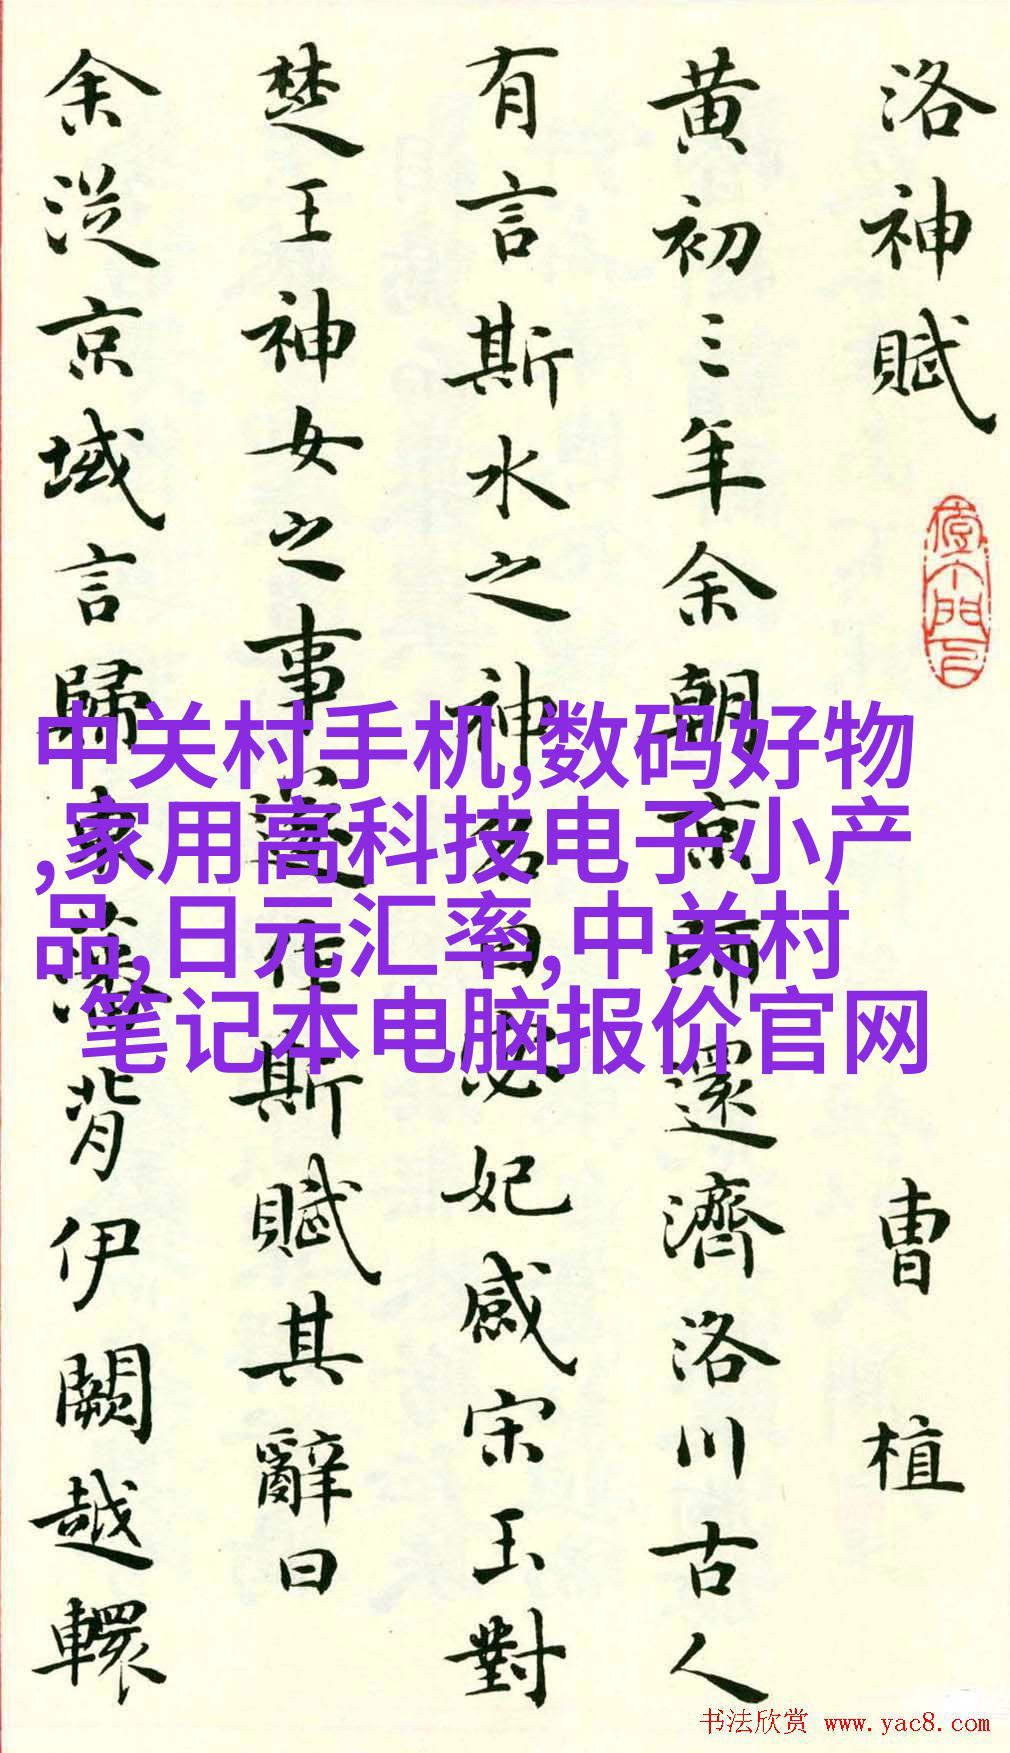 洛神賦 曹植
黄初三年余朝京師還濟洛川古人
有言斯水之神名曰宓妃感宋玉對
楚王神女之事遂作斯賦其辭曰
余從京域言歸東藩背伊闕越轘
中关村手机,数码好物
,家用高科技电子小产
品,日元汇率,中关村
笔记本电脑报价官网
书法欣赏 www.yac8.com